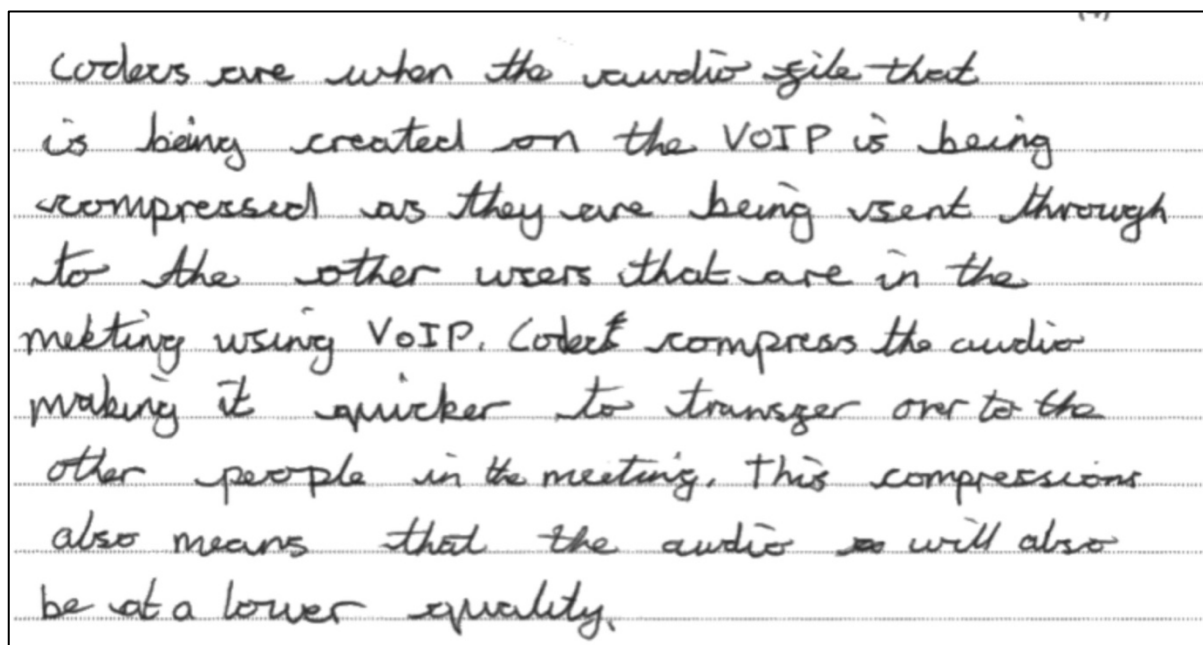 Coders are when the audio file that
is being created on the VOIP is being
compressed as they are being sent through
to the other users that are in the
meeting using VoIP. Codect compress the audio
making it quicker to transfer over to the
other people in the meeting. This compressions
also means that the audio will also
be at a lower quality.